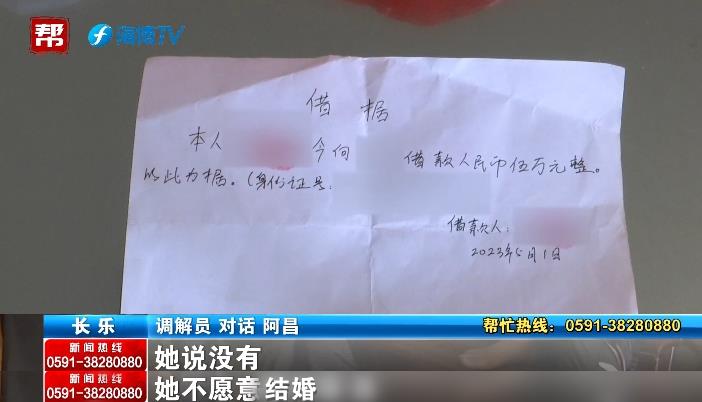 帮 海博TV
借 据
本人 今向 借款人民币伍万元整。
以此为据。(身份证号:
借款人:
2023年5月1日
长乐 调解员 对话 阿昌 帮忙热线：0591-38280880
新闻热线
0591-38280880
她说没有
新闻热线
0591-38280880
她不愿意结婚